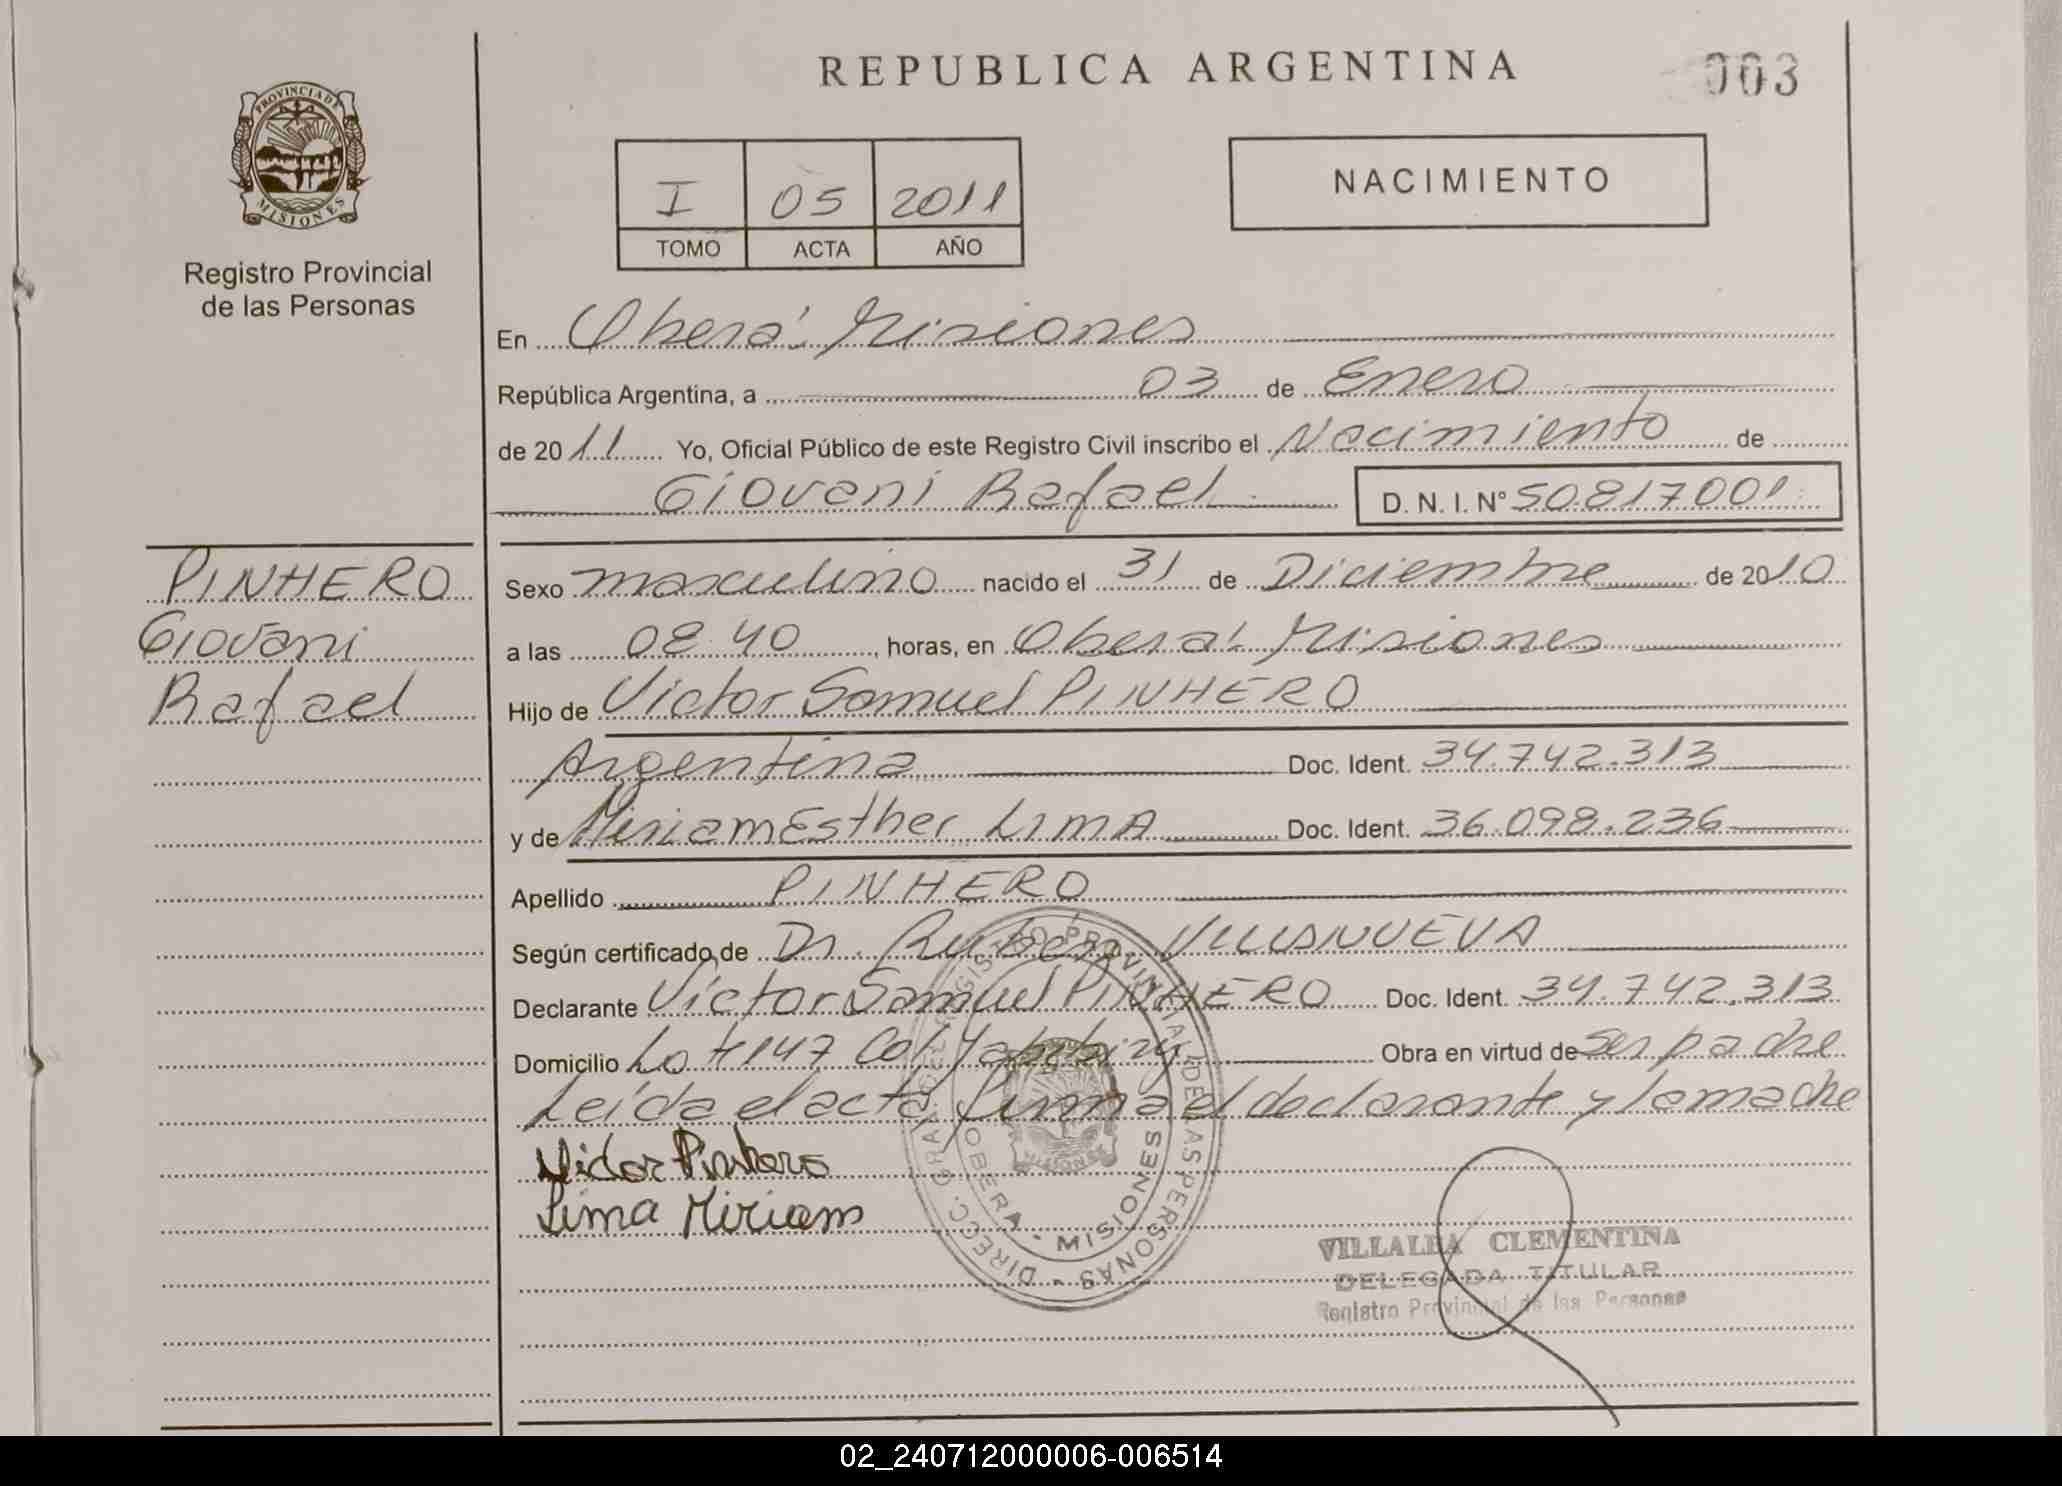 REPUBLICA ARGENTINA
003
PROVINCIA DE
MISIONES
Registro Provincial
de las Personas
I 05 2011
TOMO ACTA AÑO
NACIMIENTO
En Oberá: Misiones
República Argentina, a 03 de Enero
de 2011 Yo, Oficial Público de este Registro Civil inscribo el Nacimiento de
Giovani Rafael D. N. I. N° 50.817.001
PINHERO
Giovani
Rafael
Sexo masculino nacido el 31 de Diciembre de 2010
a las 08:40, horas, en Oberá: Misiones
Hijo de Victor Samuel PINHERO
Argentina Doc. Ident. 34.742.313
y de Miriam Esther LIMA Doc. Ident. 36.098.236
Apellido PINHERO
Según certificado de Dr. Rubén VILLANUEVA
Declarante Victor Samuel PINHERO Doc. Ident. 34.742.313
Domicilio Lote 147 Col Obra en virtud de ser padre
Leída el acta firma el declarante y la madre
Victor Pinhero
Lima Miriam
DIRECC. GRAL. DEL REGISTRO PROVINCIAL DE LAS PERSONAS
OBERA - MISIONES
VILLALBA CLEMENTINA
DELEGADA TITULAR
Registro Provincial de las Personas
02_240712000006-006514